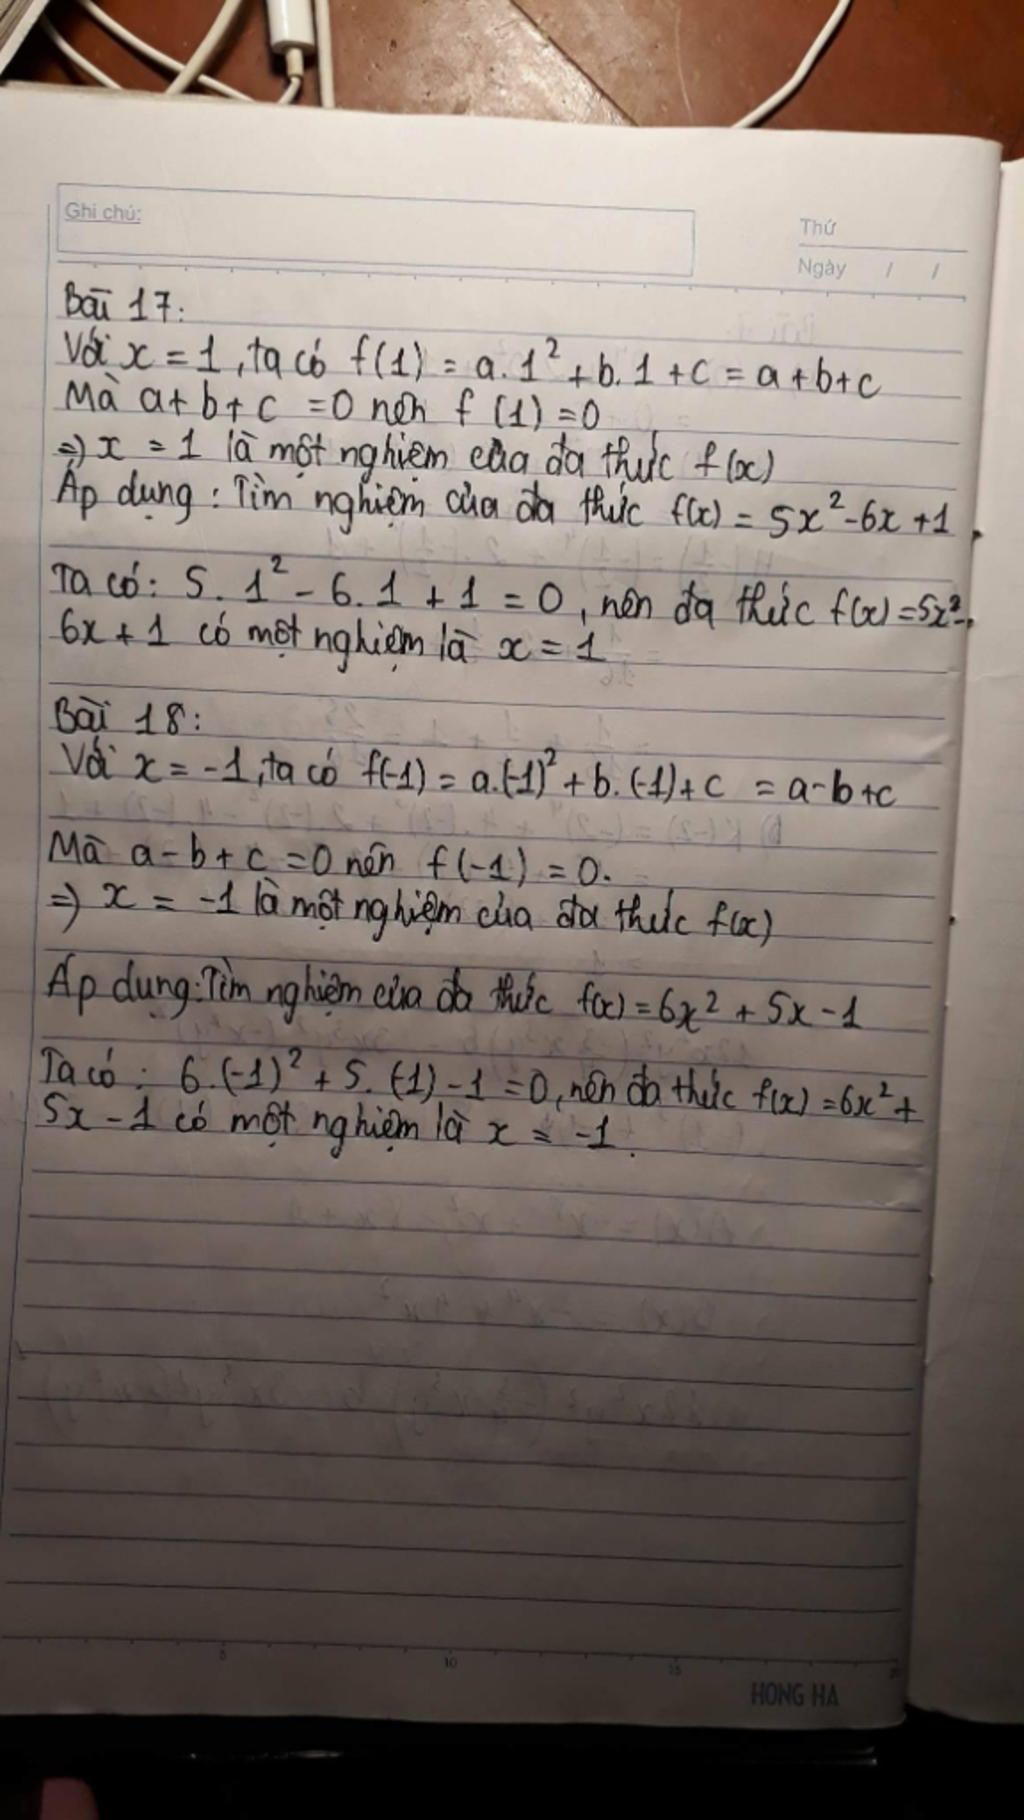 Ghi chú:
Thứ
Ngày / /
Bài 17:
Với x = 1, ta có f(1) = a.1² + b.1 + c = a + b + c
Mà a + b + c = 0 nên f(1) = 0
⇒ x = 1 là một nghiệm của đa thức f(x)
Áp dụng : Tìm nghiệm của đa thức f(x) = 5x² - 6x + 1
Ta có: 5.1² - 6.1 + 1 = 0, nên đa thức f(x) = 5x² -
6x + 1 có một nghiệm là x = 1
Bài 18:
Với x = -1, ta có f(-1) = a.(-1)² + b.(-1) + c = a - b + c
Mà a - b + c = 0 nên f(-1) = 0.
⇒ x = -1 là một nghiệm của đa thức f(x)
Áp dụng: Tìm nghiệm của đa thức f(x) = 6x² + 5x - 1
Ta có : 6.(-1)² + 5.(-1) - 1 = 0, nên đa thức f(x) = 6x² +
5x - 1 có một nghiệm là x = -1.
5 10 15
HONG HA